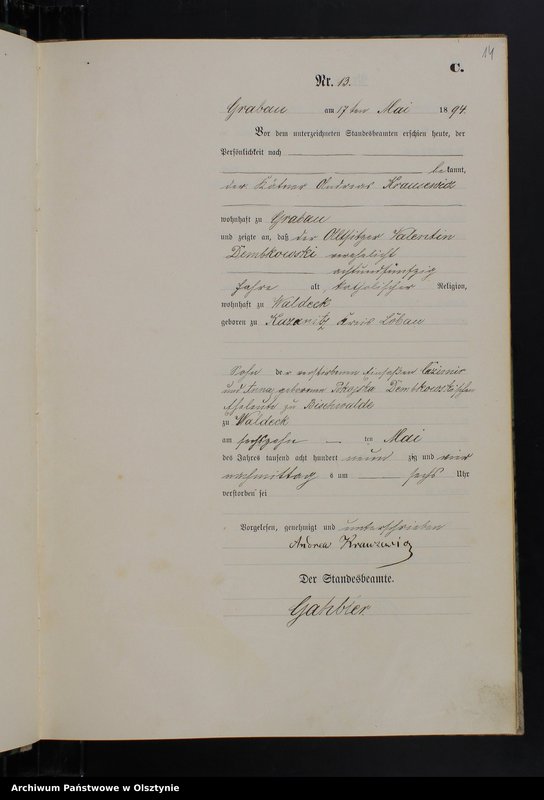 14
C.
Nr. 13.
Grabau am 17ten Mai 1894.
Vor dem unterzeichneten Standesbeamten erschien heute, der
Persönlichkeit nach
bekannt,
der Kätner Andreas
wohnhaft zu Grabau
und zeigte an, daß der Altsitzer Valentin
Dembkowski verehelicht
achtundfünfzig
Jahre alt, katholischer Religion,
wohnhaft zu Waldeck
geboren zu Kreis Löbau
Sohn der verstorbenen Casimir
und Anna geborenen Dembkowskischen
Eheleute zu Bischwalde
zu Waldeck
am sechszehn ten Mai
des Jahres tausend acht hundert neunzig und vier
nachmittags um sechs Uhr
verstorben sei
Vorgelesen, genehmigt und unterschrieben
Der Standesbeamte.
Archiwum Państwowe w Olsztynie